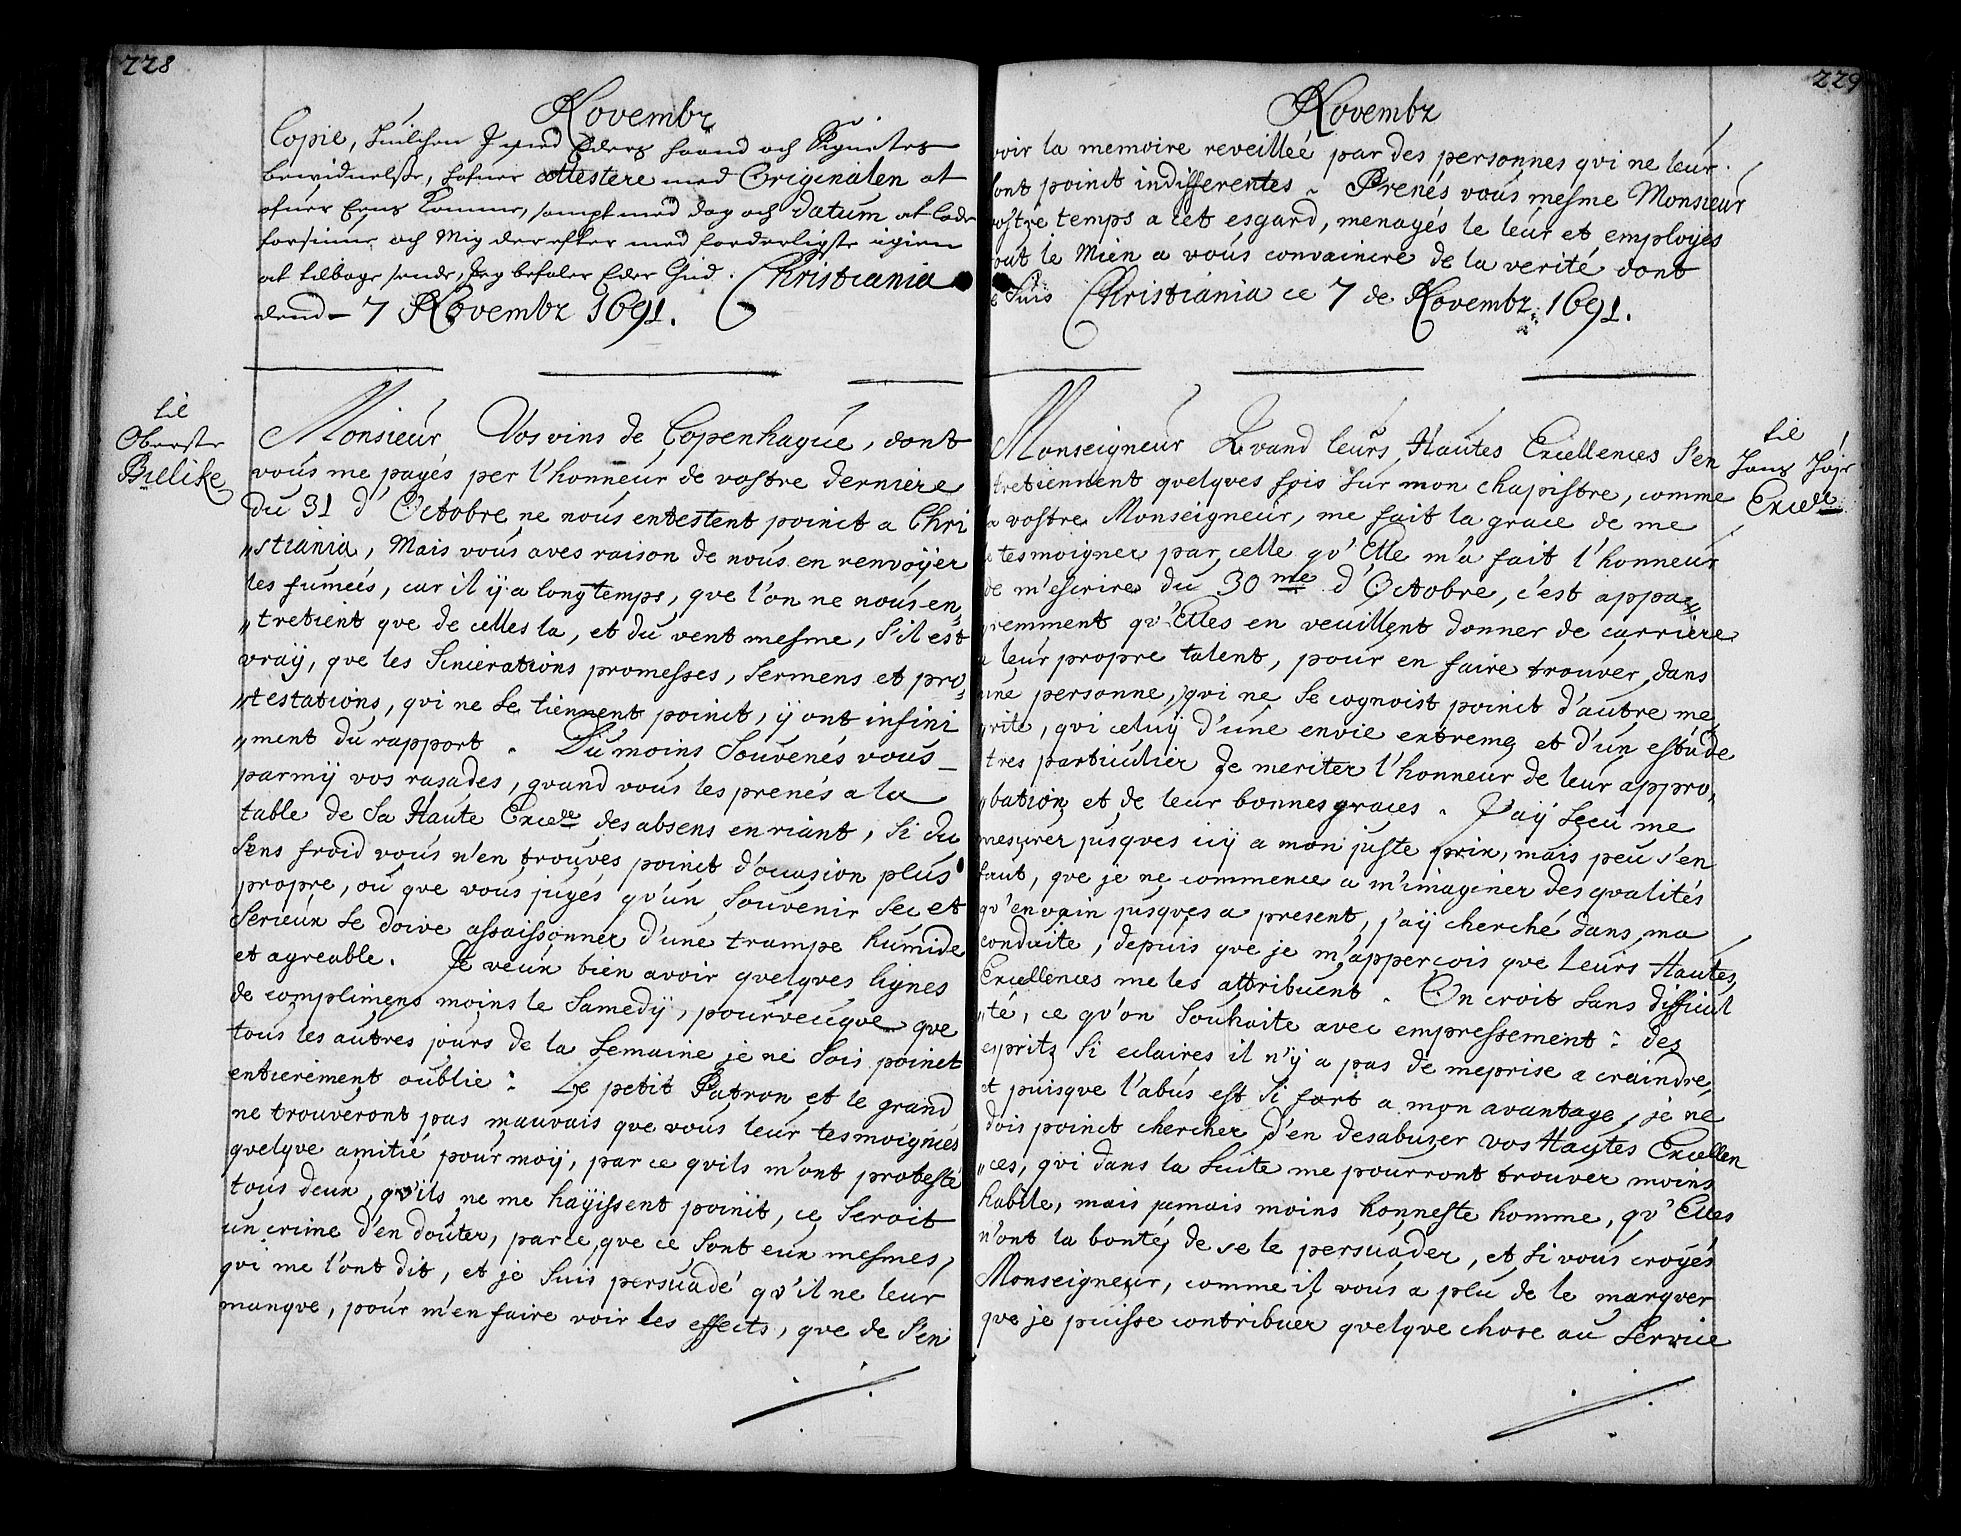 228
Novembr
Copie, huilchen I med Eders haand och Signetes
bewidnelse, hafuer attestere med Originalen at
ofuer Eens komme, sampt med dag och datum at lade
forsiune och Mig der efter med forderligste igien
at tilbage sende, Jeg befaler Eder Gud. Christiania
dend 7 Novembr 1691.
til
Oberste
Bielike
Monsieur Vos vins de Copenhague, dont
vous me payés per l'honneur de vostre derniere
du 31 d'Octobre ne nous entestent poinct a Chri
"stiania, Mais vous aves raison de nous en renvoÿer
les fumeés, car il ÿ a longtemps, que l'on ne nous en,
"tretient que de celles la, et du vent mesme, s'il est
vraÿ, que les Sincerations promesses, Sermens et pro,
"testations, qui ne se tiennent poinct, ÿ ont infini
"ment du rapport. Du moins Souvenés vous
parmÿ vos rasades, quand vous les prenés a la
table de Sa Haute Excelle des absens en riant, si du
Sens froid vous n'en trouves poinct d'occasion plus
propre, ou que vous jugés qu'un Souvenir Sec et
Serieux se doive assaissonner d'une trampe humide
et agreable. Je veux bien avoir quelques lignes
de complimens moins le Samedÿ, pourveuque que
tous les autres jours de la Semaine je ne Sois poinct
entierement oublie: Le petit Patron et le grand
ne trouveront pas mauvais que vous leur tesmoignies
quelque amitié pour moÿ, par ce quils m'ont protesté
tous deux, qu'ils ne me haÿissent poinct, ce Seroit
un crime d'en douter, parce, que ce sont eux mesmes,
qui me l'ont dit, et je Suis persuadé qu'il ne leur
manque, pour m'en faire voir les effects, que de S'en
229
Novembr
voir la memoire reveilleé par des personnes qvi ne leur
sont poinct indifferentes. Prenés vous mesme Monsieur
vostre temps a cet esgard, menagés le leur et employés
tout le Mien a vous convaincre de la verité dont
je Suis Christiania ce 7 de Novembr 1691.
til
Hans Höje
Excelle
Monseigneur Quand leurs Hautes Excellences S'en
tretiennent quelques fois Sur mon chapistre, comme
vostre Monseigneur, me fait la grace de me
tesmoigner par celle qu'Elle m'a fait l'honneur
de m'escrire du 30me d'Octobre, c'est appa,
"remment qu'Elles en veuillent donner de carriere
a leur propre talent, pour en faire trouver dans
une personne, qui ne Se cognoist poinct d'autre me,
"rite, qui celuÿ d'une envie extreme et d'un estude
tres particulier de meriter l'honneur de leur appro,
"bation et de leur bonnes graces. J'aÿ Sceu me
mesurer jusques icÿ a mon juste prix, mais peu s'en
faut, que je ne commence a m'imaginer des qualités
qu'en vain jusques a present, j'aÿ cherché dans ma
conduite, depuis que je m'appercois que Leurs Hautes
Excellences me les attribuent. On croit Sans difficul
"té, ce qu'on Souhaite avec empressement: des
espritz Si eclaires il n'ÿ a pas de meprise a craindre,
et puisque l'abus est Si fort a mon avantage, je ne
dois poinct chercher d'en desabuser vos Hautes Excellen
"ces, qui dans la Suite me pourront trouver moins
habile, mais jamais moins honneste homme, qu'Elles
n'ont la bonté de se le persuader, et si vous croyés
Monseigneur, comme il vous a plu de le marquer
que je puisse contribuer quelque chose au Service